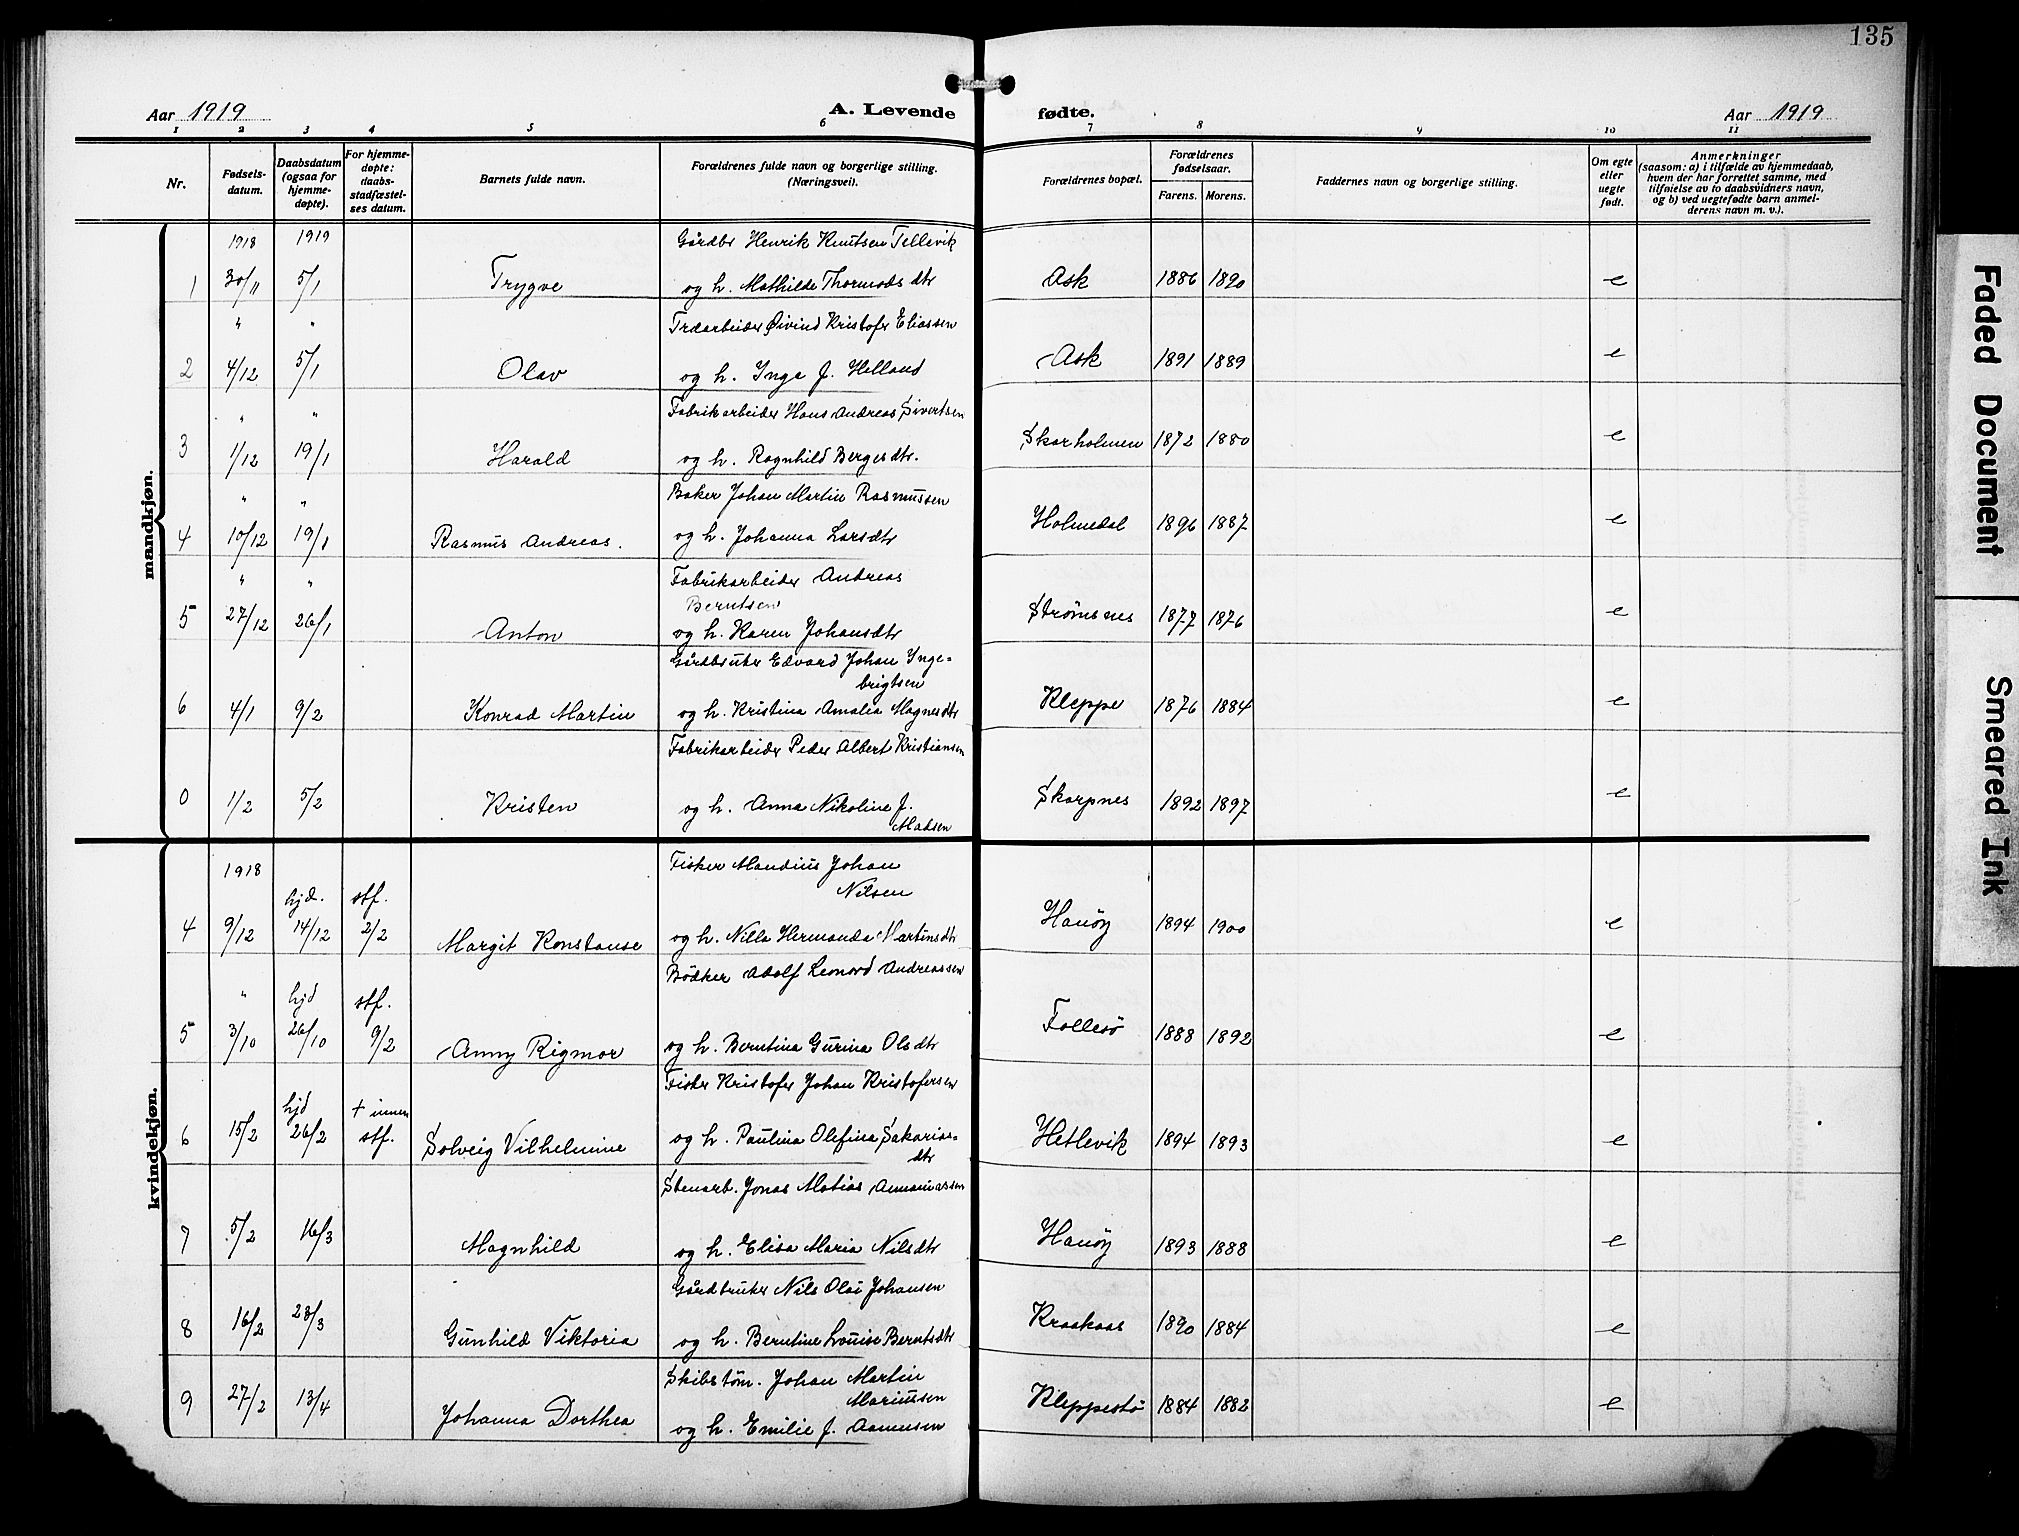 135
Aar 1919 A. Levende fødte. Aar 1919
1 2 3 4 5 6 7 8 9 10 11
Nr.
Fødsels-
datum.
Daabsdatum
(ogsaa for
hjemme-
døpte).
For hjemme-
døpte:
daabs-
stadfæstel-
ses datum.
Barnets fulde navn.
Forældrenes fulde navn og borgerlige stilling.
(Næringsvei).
Forældrenes bopæl.
Forældrenes
fødselsaar.
Farens. Morens.
Faddernes navn og borgerlige stilling.
Om egte
eller
uegte
født.
Anmerkninger
(saasom: a) i tilfælde av hjemmedaab,
hvem der har forrettet samme, med
tilføielse av to daabsvidners navn,
og b) ved uegtefødte barn anmel-
derens navn m. v.).
mandkjøn.
1918 1919 Gårdbr Henrik Knutsen Tellevik
1 30/11 5/1 Trygve og h. Mathilde Thormods dtr Ask 1886 1890 e
" " Træarbeider Øivind Kristofer Eliassen
2 4/12 5/1 Olav og h. Inga J. Helland Ask 1891 1889 e
" " Fabrikarbeider Hans Andreas Sivertsen
3 1/12 19/1 Harald og h. Ragnhild Bergesdtr. Skarholmen 1872 1880 e
" " Baker Johan Martin Rasmussen
4 10/12 19/1 Rasmus Andreas. og h. Johanna Larsdtr Holmedal 1896 1887 e
" " Fabrikarbeider Andreas
Berntsen
5 27/12 26/1 Anton og h. Karen Johansdtr Strømsnes 1877 1876 e
Gårdbruker Edvard Johan Inge-
brigtsen
6 4/1 9/2 Konrad Martin og h. Kristina Amalia Magnesdtr Kleppe 1876 1884 e
Fabrikarbeider Peder Albert Kristiansen
0 1/2 5/2 Kristen og h. Anna Nikoline J. Skarpnes 1892 1897 e
Madsen
kvindekjøn.
1918 Fisker Mandius Johan
hjd. stf. Nilsen
4 9/12 14/12 2/2 Margit Konstanse og h. Nilla Hermanda Martinsdtr Hanöy 1894 1900 e
Bödker Adolf Leonard Andreassen
" hjd stf.
5 3/10 26/10 9/2 Anny Rigmor og h. Berntina Gurina Olsdtr Follesö 1888 1892 e
Fisker Kristofer Johan Kristofersen
hjd + innen
6 15/2 26/2 stf. Solveig Vilhelmine og h. Paulina Olefina Sakarias- Hetlevik 1894 1893 e
dtr
Stenarb. Jonas Matias Annaniassen
7 5/2 16/3 Magnhild og h. Elisa Maria Nilsdtr Hanöy 1893 1888 e
Gårdbruker Nils Olai Johansen
8 16/2 23/3 Gunhild Viktoria og h. Berntine Louise Berntsdtr Kraakaas 1890 1884 e
Skibstøm. Johan Martin
Mariussen
9 27/2 13/4 Johanna Dorthea og h. Emilie J. Aamusen Kleppestö 1884 1882 e
Faded Document
Smeared Ink